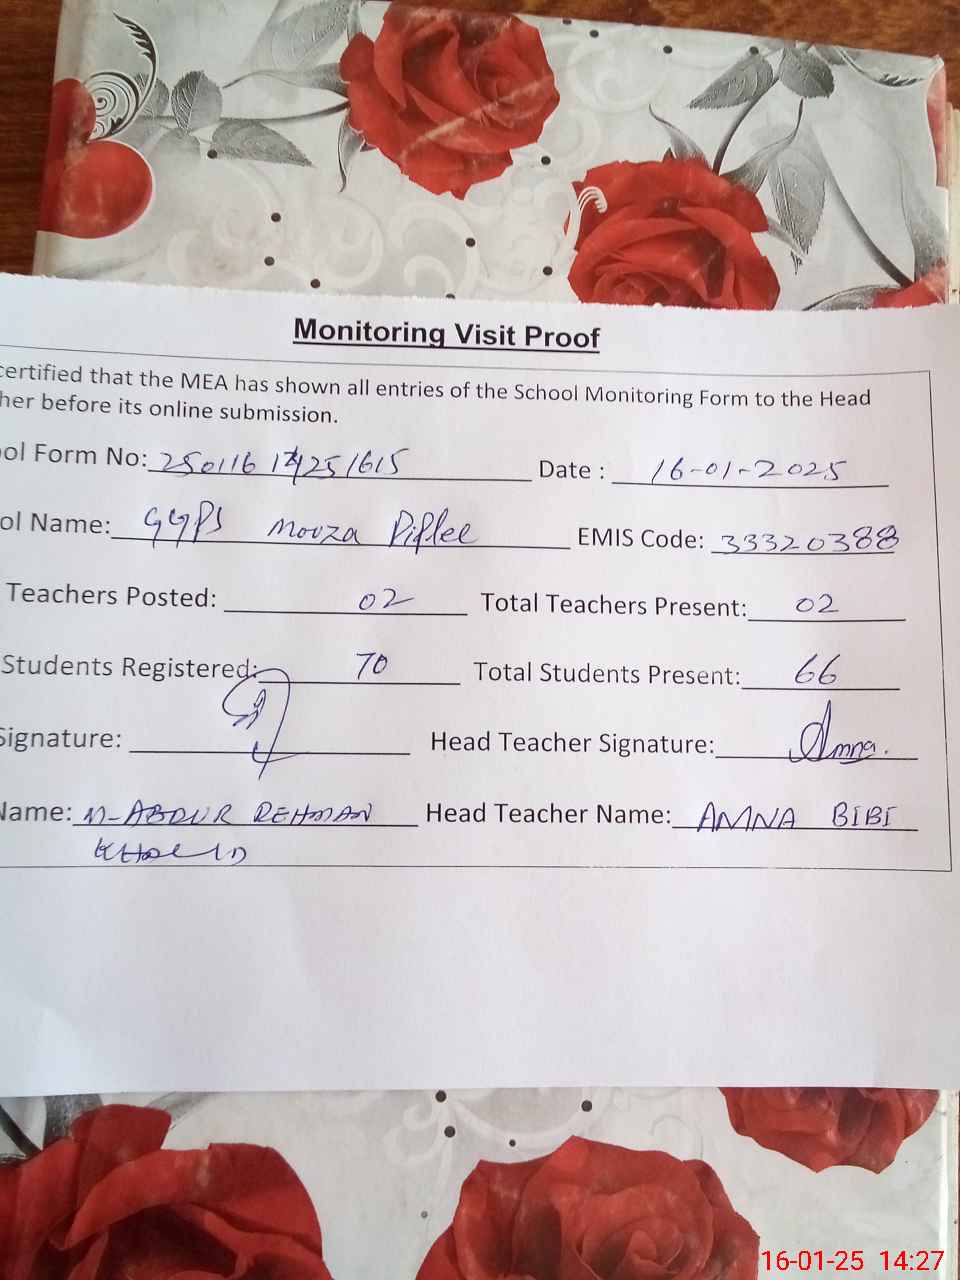 Monitoring Visit Proof
certified that the MEA has shown all entries of the School Monitoring Form to the Head
her before its online submission.
ol Form No: 250116 14251615 Date : 16-01-2025
ol Name: GGPS Mouza Piplee EMIS Code: 33320388
Teachers Posted: 02 Total Teachers Present: 02
Students Registered: 70 Total Students Present: 66
Signature: Head Teacher Signature: Amna.
Name: M-ABDUR REHMAN Head Teacher Name: AMNA BIBI
KHALID
16-01-25 14:27